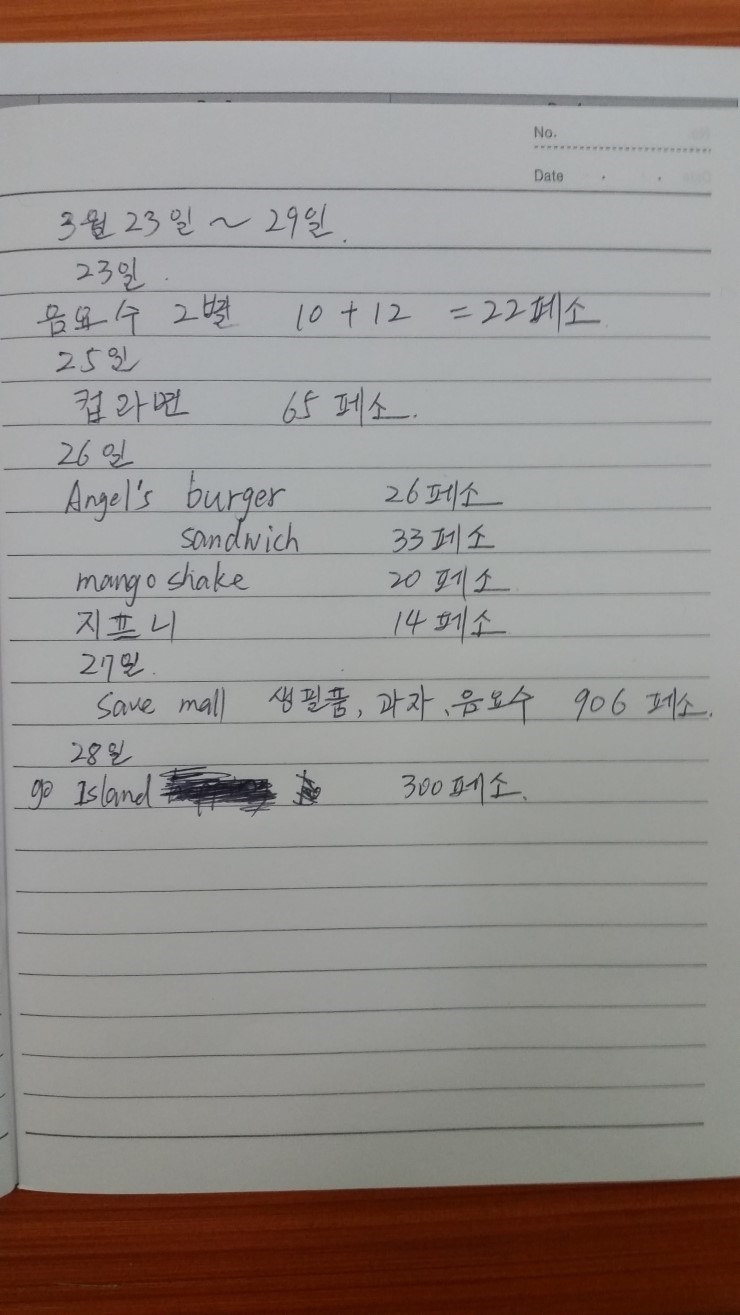 No.
Date . .
3월 23일 ~ 29일.
23일.
음요수 2별 10 + 12 = 22페소
25일
컵라면 65 페소.
26일
Angel's burger 26페소
sandwich 33페소
mango shake 20 페소
지프니 14 페소
27일.
Save mall 생필품, 과자, 음요수 906 페소.
28일
go Island 300페소.